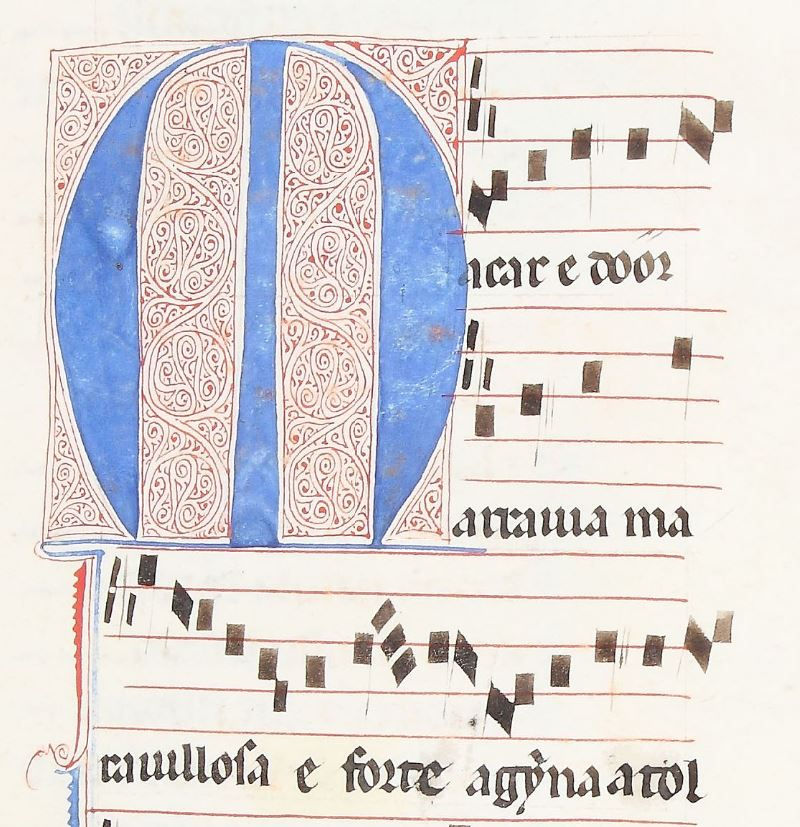 Macar e door
arrauia ma
rauillosa e forte agỹna a tol